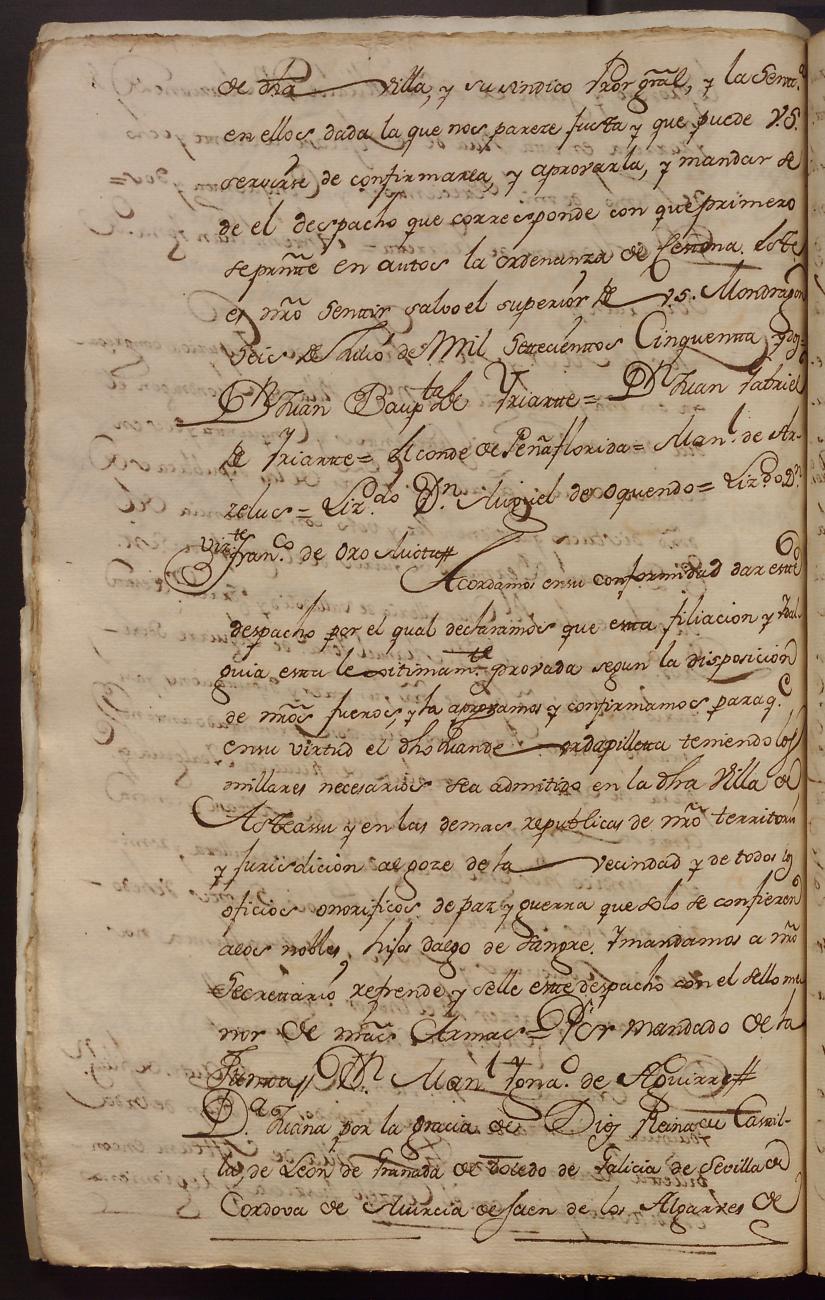 de dha villa, y su sindico Pror gral, y la Senta.
en ellos dada la que nos pareze justa y que puede V.S.
servirse de confirmarla, y aprovarla, y mandar se
de el despacho que corresponde con que primero
se preste en autos la ordenanza de Cestona. este
es nrō sentir salvo el superior de V.S. Mondragon
Seis de Julio de Mil Setecientos Cinquenta y dos=
Dn Juan Baupta de Yriarte= Dn Juan Gabriel
de Yriarte= el conde de Peñaflorida= Manl. de Ar-
zelus= Lizdo. Dn. Miguel de Oquendo= Lizdo. Dn.
Vizte Franco de Oro Miota//
Acordamos en su conformidad dar este
despacho por el qual declaramos que esta filiacion y Idal
guia esta lexitimamte. provada segun la disposicion
de nrōs fueros, y la aprovamos y confirmamos para q.e
en su virtud el dho Juan de ordapilleta teniendo los
millares necesarios sea admitido en la dha Villa de
Asteassu y en las demas republicas de nrō territorio
y jurisdicion al goze de la vecindad y de todos los
oficios onorificos de paz y guerra que solo se confieren
alos nobles, hijos dalgo de sangre. Y mandamos a nrō
Secretario refrende y selle este despacho con el sello me
nor de nrās Armas= Por mandado de la
Junta// Dn Manl Ignao. de Aguirre//
Da. Juana por la gracia de Dios Reina de Castil-
la, de León de Granada de Toledo de Galicia de Sevilla de
Cordova de Murcia de Jaen de los Algarves de